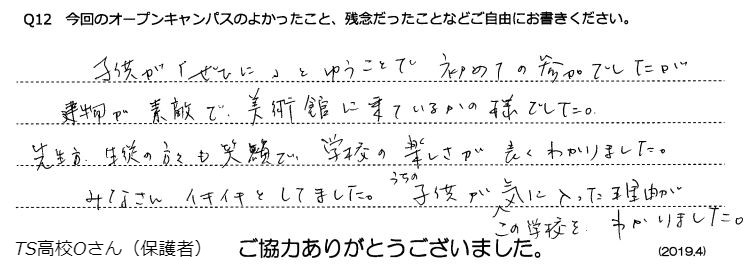 Q12　今回のオープンキャンパスのよかったこと、残念だったことなどご自由にお書きください。
子供が「ぜひに」とゆうことで 初めての参加でしたが
建物が 素敵で、美術館に来ているかの様でした。
先生方、生徒の方々も笑顔で、学校の楽しさが 良くわかりました。
みなさん イキイキとしてました。うちの子供が この学校を 気に入った理由が わかりました。
TS高校Oさん（保護者）　ご協力ありがとうございました。　(2019.4)